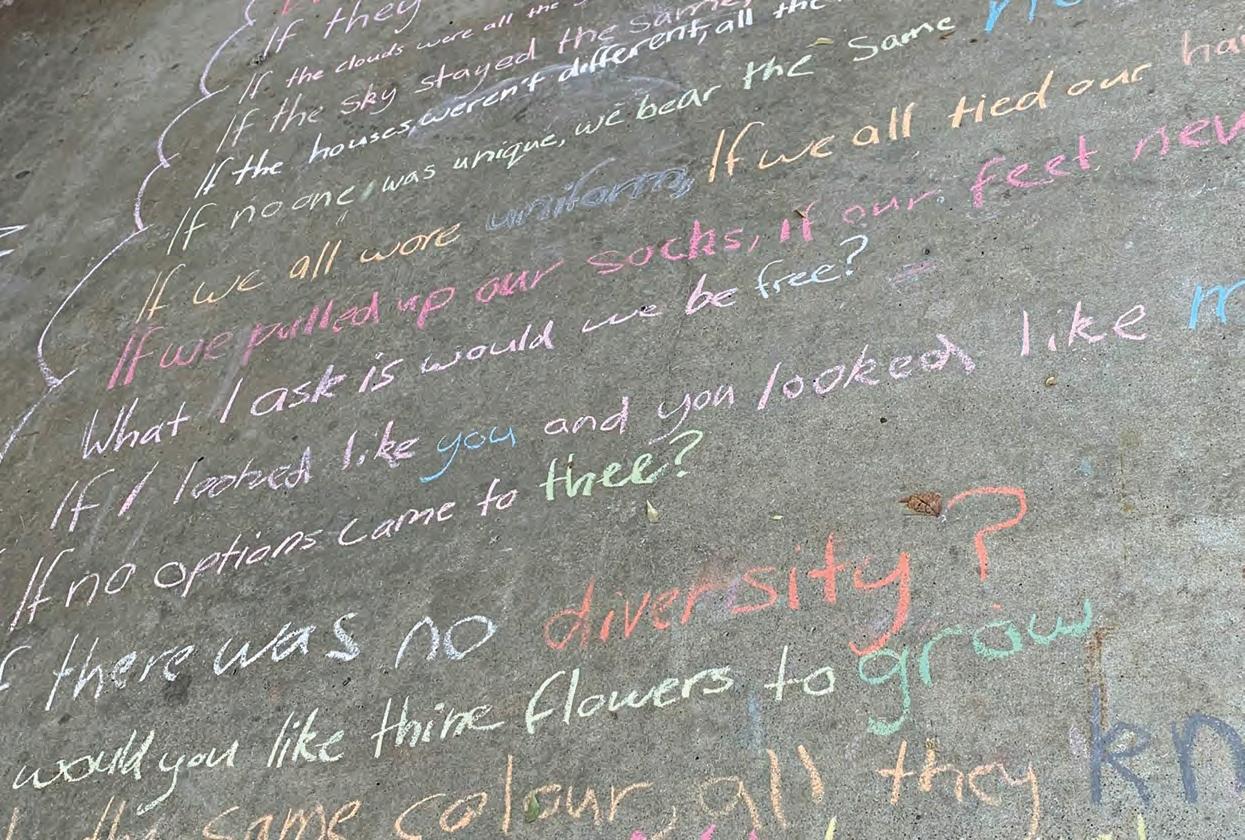 If they
If the clouds were all the
If the sky stayed the same,
If the houses, weren't different, all the
If no one was unique, we bear the same
If we all wore uniform, If we all tied our
If we pulled up our socks, if our feet
What I ask is would we be free?
If I looked like you and you looked like
If no options came to thee?
there was no diversity?
would you like thine flowers to grow
same colour, all they